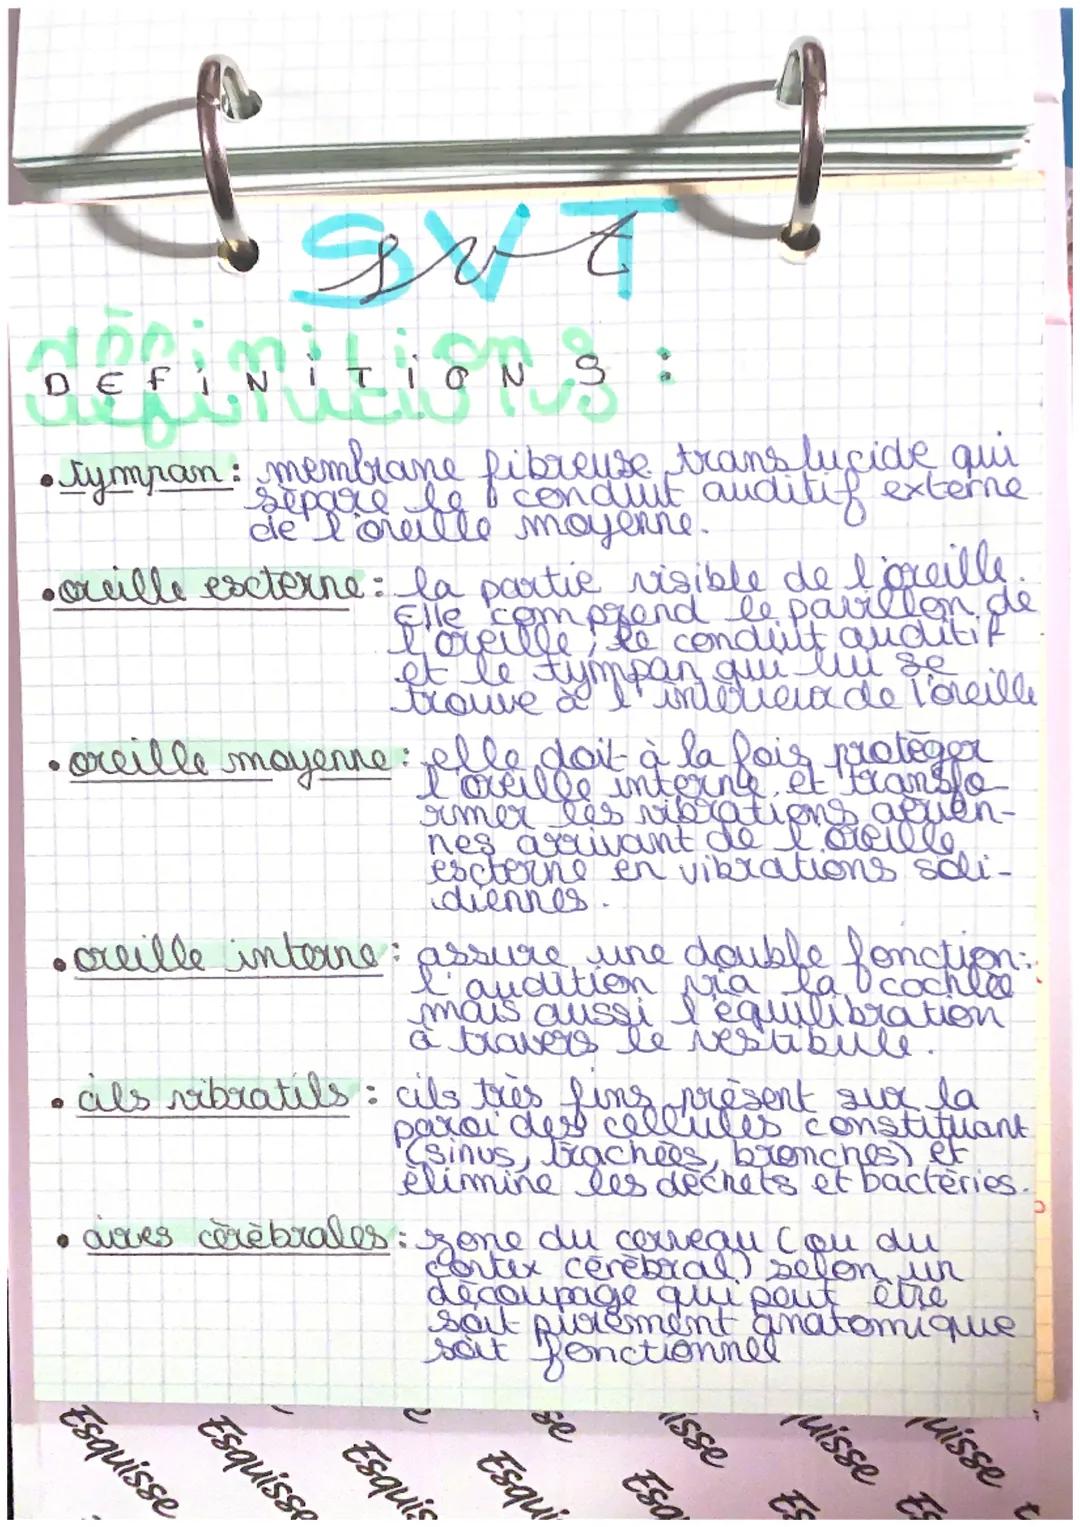 SVT
svt
définitions
DEFiNiTiONS :
• tympan : membrane fibreuse translucide qui
sépare le conduit auditif externe
de l'oreille moyenne.
• oreille externe : la partie visible de l'oreille.
Elle comprend le pavillon de
l'oreille, le conduit auditif
et le tympan qui lui se
trouve à l'intérieur de l'oreille
• oreille moyenne : elle doit à la fois protéger
l'oreille interne et transfo-
rmer les vibrations aérien-
nes arrivant de l'oreille
externe en vibrations soli-
diennes.
• oreille interne : assure une double fonction :
l'audition via la cochlée
mais aussi l'équilibration
à travers le vestibule.
• cils vibratils : cils très fins présent sur la
paroi des cellules constituant
(sinus, trachées, bronches) et
élimine les déchets et bactéries.
• aires cérébrales : zone du cerveau (ou du
cortex cérébral) selon un
découpage qui peut être
soit purement anatomique
soit fonctionnel
Esquisse Esquisse Esquis Esqui Esq Es Es
se isse uisse uisse